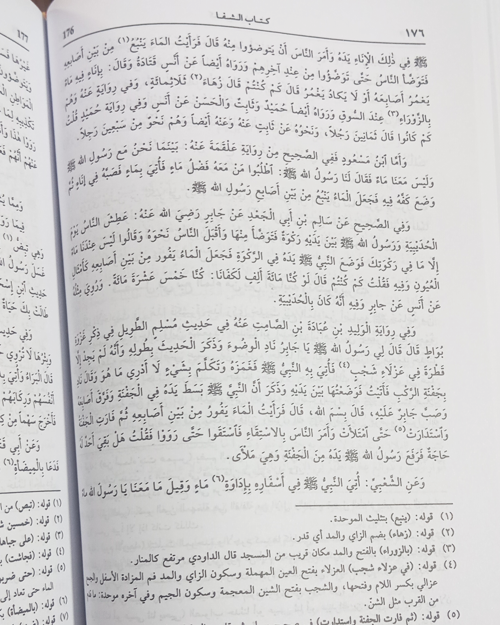 ١٧٦
كتاب الشفا
176
ﷺ في ذلِكَ الْإِناءِ يَدَهُ وَأَمَرَ النَّاسَ أَنْ يَتَوضَّؤوا مِنْهُ قَالَ فَرَأَيْتُ الْمَاءَ يَنْبُعُ(١) مِنْ بَيْنِ أَصَابِعِهِ
فَتَوَضَّأَ النَّاسُ حَتَّى تَوَضَّؤُوا مِنْ عِنْدِ آخِرِهِمْ وَرَوَاهُ أَيْضاً عَنْ أَنَسٍ قَتَادَةُ وَقَالَ: بِإِنَاءٍ فِيهِ مَاءٌ
يَغْمُرُ أَصَابِعَهُ أَوْ لَا يَكَادُ يَغْمُرُ قَالَ كَمْ كُنْتُمْ قَالَ زُهَاءَ(٢) ثَلَاثِمِائَةٍ، وَفي رِوَايَةٍ عَنْهُ وَهُمْ
بِالزَّوْرَاءِ(٣) عِنْدَ السُّوقِ وَرَوَاهُ أَيْضاً حُمَيْدٌ وَثَابِتٌ وَالْحَسَنُ عَنْ أَنَسٍ وَفِي رِوَايَةِ حُمَيْدٍ قُلْتُ
كَمْ كَانُوا قَالَ ثَمَانِينَ رَجُلاً، وَنَحْوُهُ عَنْ ثَابِتٍ عَنْهُ وَعَنْهُ أَيْضاً وَهُمْ نَحْوٌ مِنْ سَبْعِينَ رَجُلاً.
وَأَمَّا ابْنُ مَسْعُودٍ فَفِي الصَّحِيحِ مِنْ رِوَايَةِ عَلْقَمَةَ عَنْهُ: بَيْنَمَا نَحْنُ مَعَ رَسُولِ اللهِ ﷺ
وَلَيْسَ مَعَنَا مَاءٌ فَقَالَ لَنَا رَسُولُ اللهِ ﷺ: اطْلُبُوا مَنْ مَعَهُ فَضْلُ مَاءٍ فَأُتِيَ بِمَاءٍ فَصَبَّهُ فِي إِنَاءٍ ثُمَّ
وَضَعَ كَفَّهُ فِيهِ فَجَعَلَ الْمَاءُ يَنْبُعُ مِنْ بَيْنِ أَصَابِعِ رَسُولِ اللهِ ﷺ.
وَفِي الصَّحِيحِ عَنْ سَالِمِ بْنِ أَبِي الْجَعْدِ عَنْ جَابِرٍ رَضِيَ اللهُ عَنْهُ: عَطِشَ النَّاسُ يَوْمَ
الْحُدَيْبِيَّةِ وَرَسُولُ اللهِ ﷺ بَيْنَ يَدَيْهِ رَكْوَةٌ فَتَوَضَّأَ مِنْهَا وَأَقْبَلَ النَّاسُ نَحْوَهُ وَقَالُوا لَيْسَ عِنْدَنَا مَاءٌ
إِلَّا مَا فِي رَكْوَتِكَ فَوَضَعَ النَّبِيُّ ﷺ يَدَهُ فِي الرَّكْوَةِ فَجَعَلَ الْمَاءُ يَفُورُ مِنْ بَيْنِ أَصَابِعِهِ كَأَمْثَالِ
الْعُيُونِ وَفِيهِ فَقُلْتُ كَمْ كُنْتُمْ قَالَ لَوْ كُنَّا مِائَةَ أَلْفٍ لَكَفَانَا: كُنَّا خَمْسَ عَشْرَةَ مَائَةً. وَرُوِيَ مِثْلُهُ
عَنْ أَنَسٍ عَنْ جابرٍ وَفِيهِ أَنَّهُ كَانَ بِالْحُدَيْبِيَّةِ.
وَفِي رِوَايَةِ الْوَلِيدِ بْنِ عُبَادَةَ بْنِ الصَّامِتِ عَنْهُ فِي حَدِيثِ مُسْلِمٍ الطَّوِيلِ فِي ذِكْرِ غَزْوَةِ
بُوَاطٍ قَالَ قَالَ لِي رَسُولُ اللهِ ﷺ يَا جَابِرُ نَادِ الْوَضُوءَ وَذَكَرَ الْحَدِيثَ بِطُولِهِ وَأَنَّهُ لَمْ يَجِدْ إِلَّا
قَطْرَةً فِي عَزْلَاءِ شَجْبٍ(٤) فَأُتِيَ بِهِ النَّبِيُّ ﷺ فَغَمَزَهُ وَتَكَلَّمَ بِشَيْءٍ لَا أَدْرِي مَا هُوَ وَقَالَ نَادِ
بِجَفْنَةِ الرَّكْبِ فَأَتَيْتُ فَوَضَعْتُهَا بَيْنَ يَدَيْهِ وَذَكَرَ أَنَّ النَّبِيَّ ﷺ بَسَطَ يَدَهُ فِي الْجَفْنَةِ وَفَرَّقَ أَصَابِعَهُ
وَصَبَّ جَابِرٌ عَلَيْهِ، قَالَ: بِسْمِ الله، قَالَ فَرَأَيْتُ الْمَاءَ يَفُورُ مِنْ بَيْنِ أَصَابِعِهِ ثُمَّ فَارَتِ الْجَفْنَةُ
وَاسْتَدَارَتْ(٥) حَتَّى امْتَلَأَتْ وَأَمَرَ النَّاسَ بِالاسْتِقَاءِ فَاسْتَقَوا حَتَّى رَوَوْا فَقُلْتُ هَلْ بَقِيَ أَحَدٌ لَهُ
حَاجَةٌ فَرَفَعَ رَسُولُ اللهِ ﷺ يَدَهُ مِنَ الْجَفْنَةِ وَهِيَ مَلأَى.
وَعَنِ الشَّعْبِيِّ: أُتِيَ النَّبِيُّ ﷺ فِي أَسْفَارِهِ بِإِدَاوَةِ(٦) مَاءٍ وَقِيلَ مَا مَعَنَا يَا رَسُولَ اللهِ مَاءٌ
(١) قوله: (ينبع) بتثليث الموحدة.
(٢) قوله: (زهاء) بضم الزاي والمد أي قدر.
(٣) قوله: (بالزوراء) بالفتح والمد مكان قريب من المسجد قال الداودي مرتفع كالمنار.
(٤) قوله: (في عزلاء شجب) العزلاء بفتح العين المهملة وسكون الزاي والمد فم المزادة الأسفل والجمع
عزالي بكسر اللام وفتحها، والشجب بفتح الشين المعجمة وسكون الجيم وفي آخره موحدة: ما قدم
من القرب مثل الشنّ.
(٥) قوله: (ثم فارت الجفنة واستدارت)